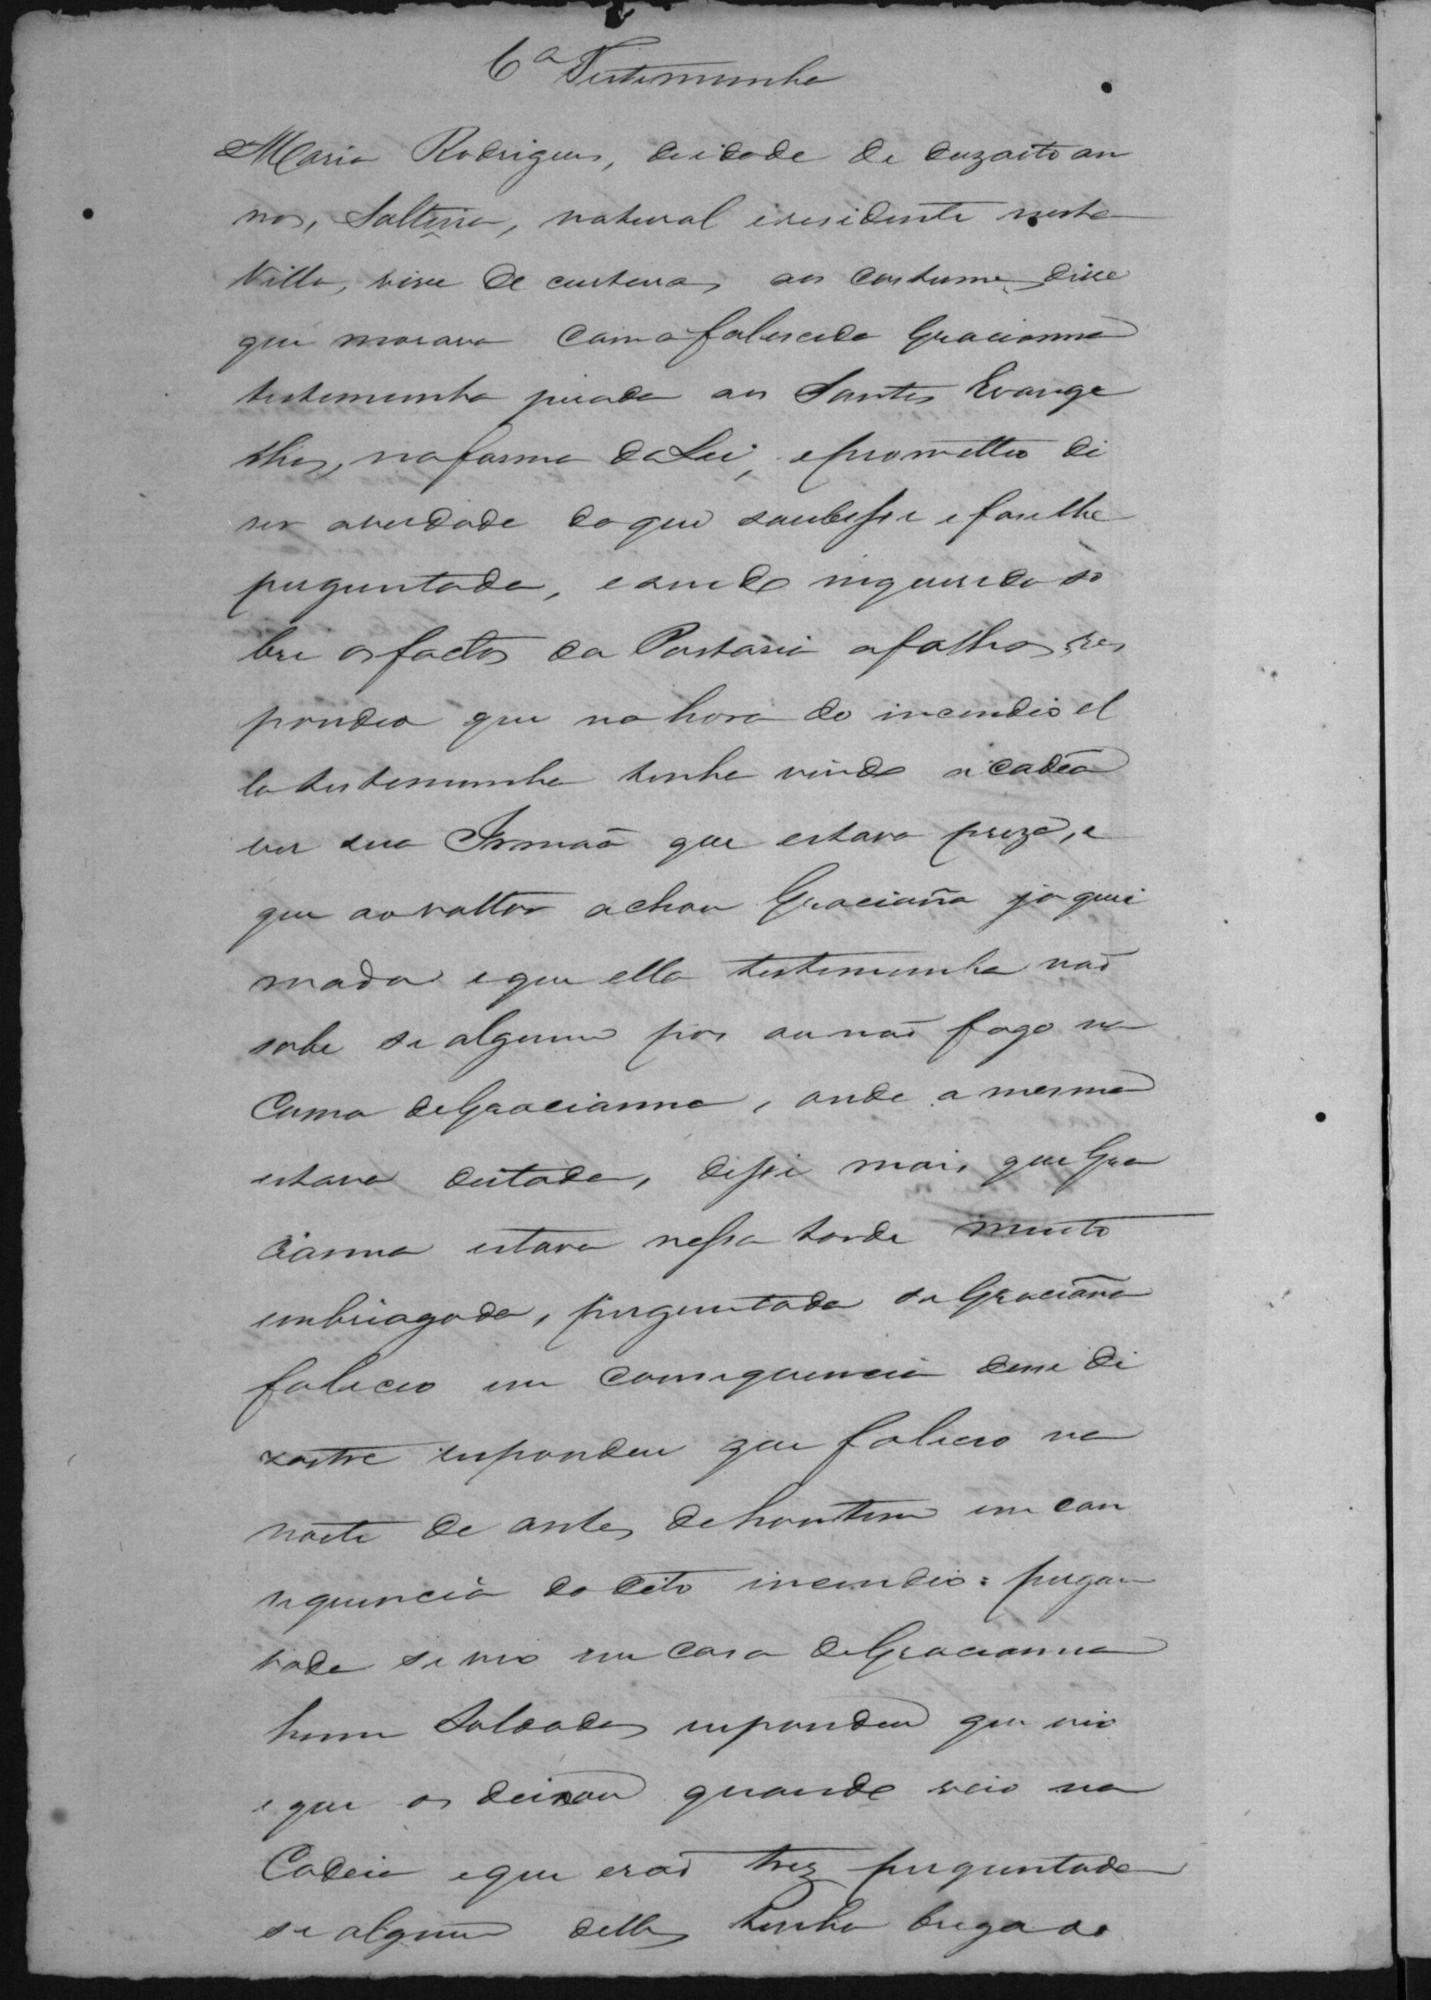 6ª Testemunha
Maria Rodrigues, de idade de dezoito an
nos, Solteira, natural e residente nesta
Villa, vive de custuras, aos custumes disse
que morava com a falescida Gracianna
testemunha jurada aos Santos Evange
lhos, na forma da Lei, e prometteo di
ser a verdade do que soubesse e fosse lhe
perguntada, e sendo inquerida so
bre os factos da Portaria a folhas, res
pondeo que na hora do incendio el
la testemunha tinha vindo a cadea
ver sua Irmaã que estava preza, e
que ao voltar achou Graciaña ja quei
mada e que ella testemunha naõ
sabe se alguem pos ou naõ fogo na
Cama de Gracianna, onde a mesma
estava deitada, disse mais que Gra
cianna estava nessa tarde muito
embriagada, perguntada se Graciaña
faleceo em consequencia desse di
zastre respondeu que faleceo na
noite de antes de hontem em con
sequencia do dito incendio: pergun
tada se vio em casa de Gracianna
huns Soldados respondeu que vio
e que os deixou quando veio na
Cadeia e que eraõ trez perguntada
se algum delles tinha brigado